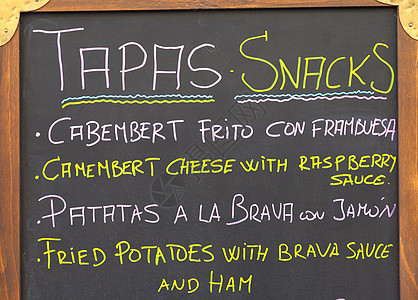 TAPAS · SNACKS
· CABEMBERT FRITO CON FRAMBUESA
· CAMEMBERT CHEESE WITH RASPBERRY
SAUCE.
· PATATAS A LA BRAVA CON JAMÓN
· FRIED POTATOES WITH BRAVA SAUCE
AND HAM